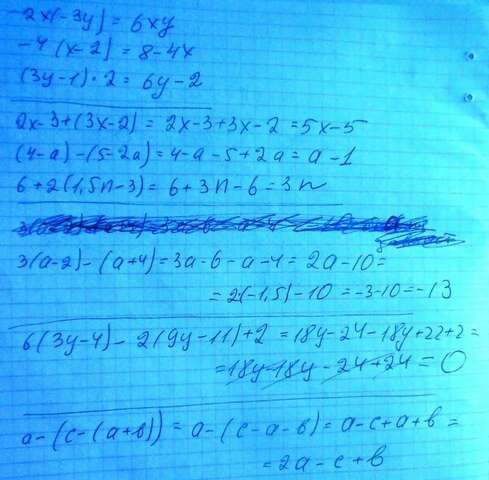 -2x(-3y) = 6xy
-4(x-2) = 8-4x
(3y-1)·2 = 6y-2
2x-3+(3x-2) = 2x-3+3x-2 = 5x-5
(4-a)-(5-2a) = 4-a-5+2a = a-1
6+2(1,5n-3) = 6+3n-6 = 3n
3(a-2)-(a+4) = 3a-6-a-4 = 2a-10 =
= 2(-1,5)-10 = -3-10 = -13
6(3y-4)-2(9y-11)+2 = 18y-24-18y+22+2 =
= 18y-18y-24+24 = 0
a-(c-(a+b)) = a-(c-a-b) = a-c+a+b =
= 2a-c+b